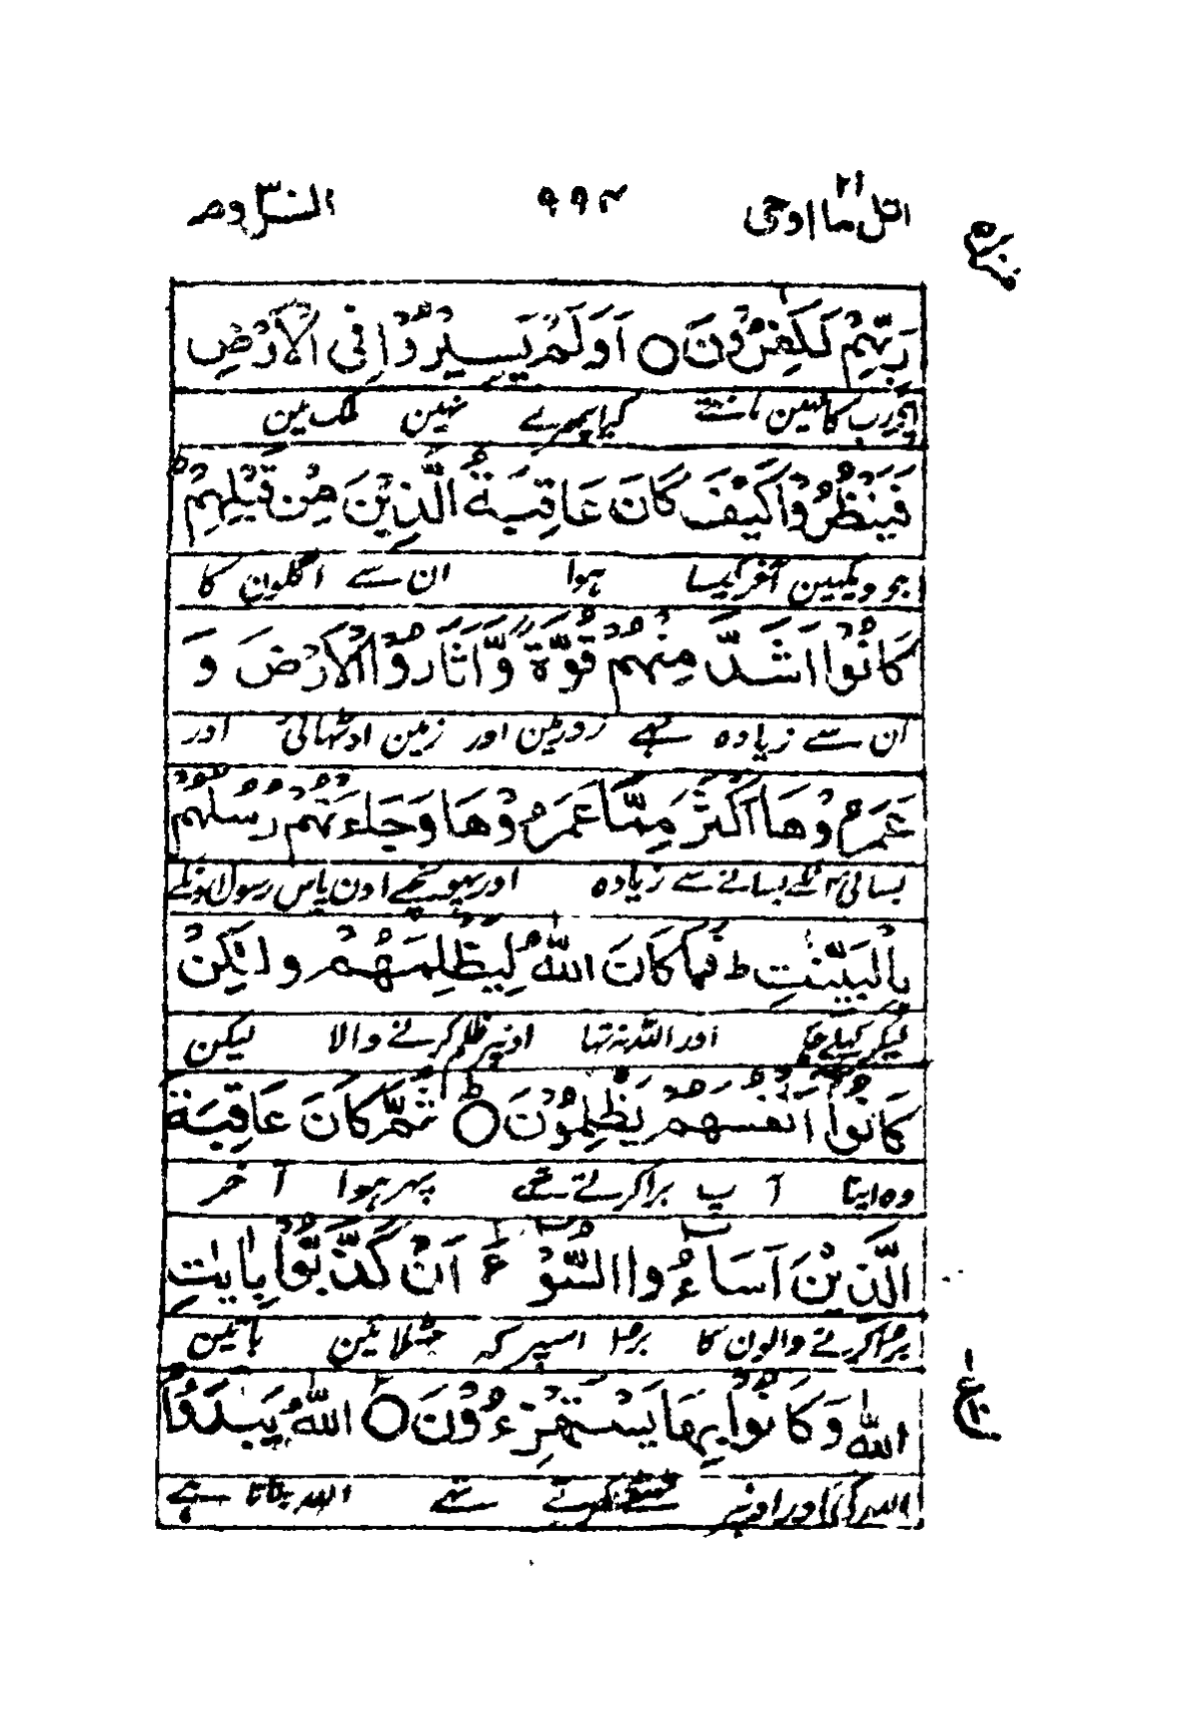 اتل ما اوحی ٢١ ٩٩۴ الروم ٣٠
رَبِّهِمْ لَكٰفِرُوْنَ ○ اَوَلَمْ يَسِيْرُوْا فِى الْاَرْضِ
اپنی رب کا نہین مانتے کیا پھرے نہین ملک مین
فَيَنْظُرُوْا كَيْفَ كَانَ عَاقِبَةُ الَّذِيْنَ مِنْ قَبْلِهِمْ ط
جو دیکہین آخر کیسا ہوا ان سے اگلون کا
كَانُوْا اَشَدَّ مِنْهُمْ قُوَّةً وَّاَثَارُوا الْاَرْضَ وَ
ان سے زیادہ تہے زورمین اور زمین اوٹھائی اور
عَمَرُوْهَا اَكْثَرَ مِمَّا عَمَرُوْهَا وَجَاءَتْهُمْ رُسُلُهُمْ
بسائی انکے بسانے سے زیادہ اور پہونچے اون پاس رسول اونکے
بِالْبَيِّنٰتِ ط فَمَا كَانَ اللّٰهُ لِيَظْلِمَهُمْ وَلٰكِنْ
لیکر کہلے اور اللہ نہ تہا اونپر ظلم کرنے والا لیکن
كَانُوْا اَنْفُسَهُمْ يَظْلِمُوْنَ ○ ط ثُمَّ كَانَ عَاقِبَةَ
وہ اپنا آپ برا کرتے تھے پہر ہوا آخر
الَّذِيْنَ اَسَاءُوا السُّوْءٰ اَنْ كَذَّبُوْا بِاٰيٰتِ
برا کرنے والون کا برا اسپر کہ جھٹلائین باتین
اللّٰهِ وَكَانُوْا بِهَا يَسْتَهْزِءُوْنَ ○ اَللّٰهُ يَبْدَؤُا
ع
اللہ کی اور اونپر ٹھٹھے کرتے تہے اللہ بناتا ہے